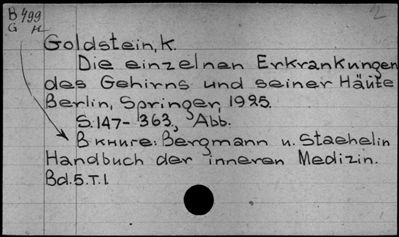 В 499
G н
Goldstein, K.
Die einzelnen Erkrankungen
des Gehirns und seiner Häute
Berlin, Springer, 1925.
S. 147-363, Abb.
В книге: Bergmann u. Staehelin
Handbuch der inneren Medizin.
Bd. 5. T. 1.